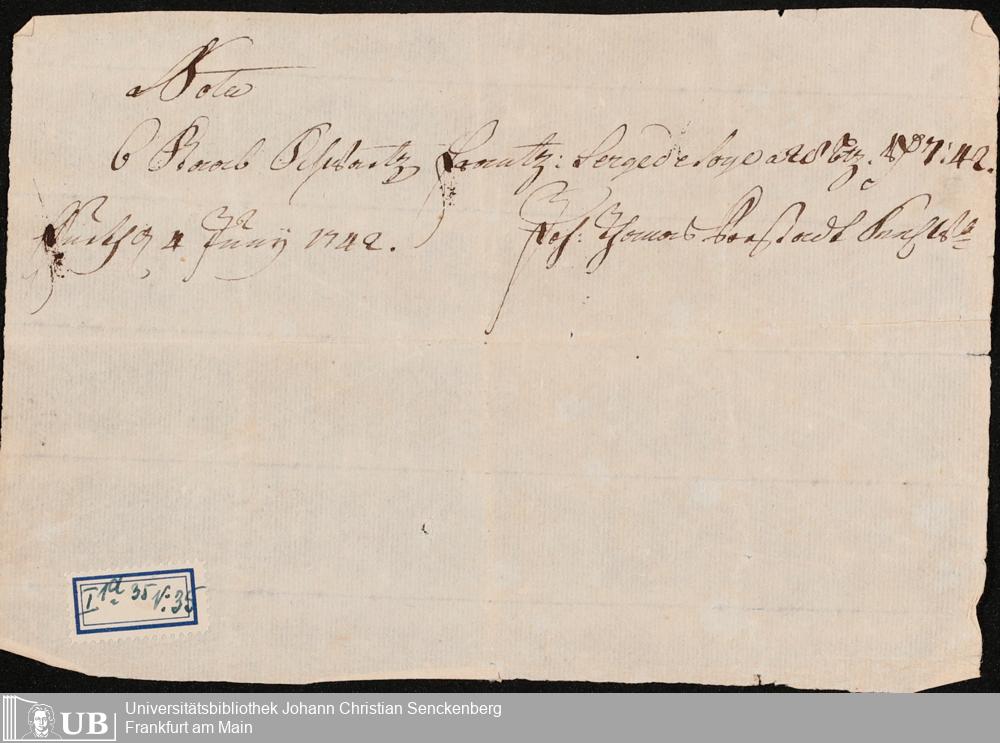 Nota
6 Staab Schwartz frantz: Serge de Soye a 28 btz. 7:42.
4 Juny 1742. Joh: Thomas
I 1a 35 N: 35
UB Universitätsbibliothek Johann Christian Senckenberg
Frankfurt am Main